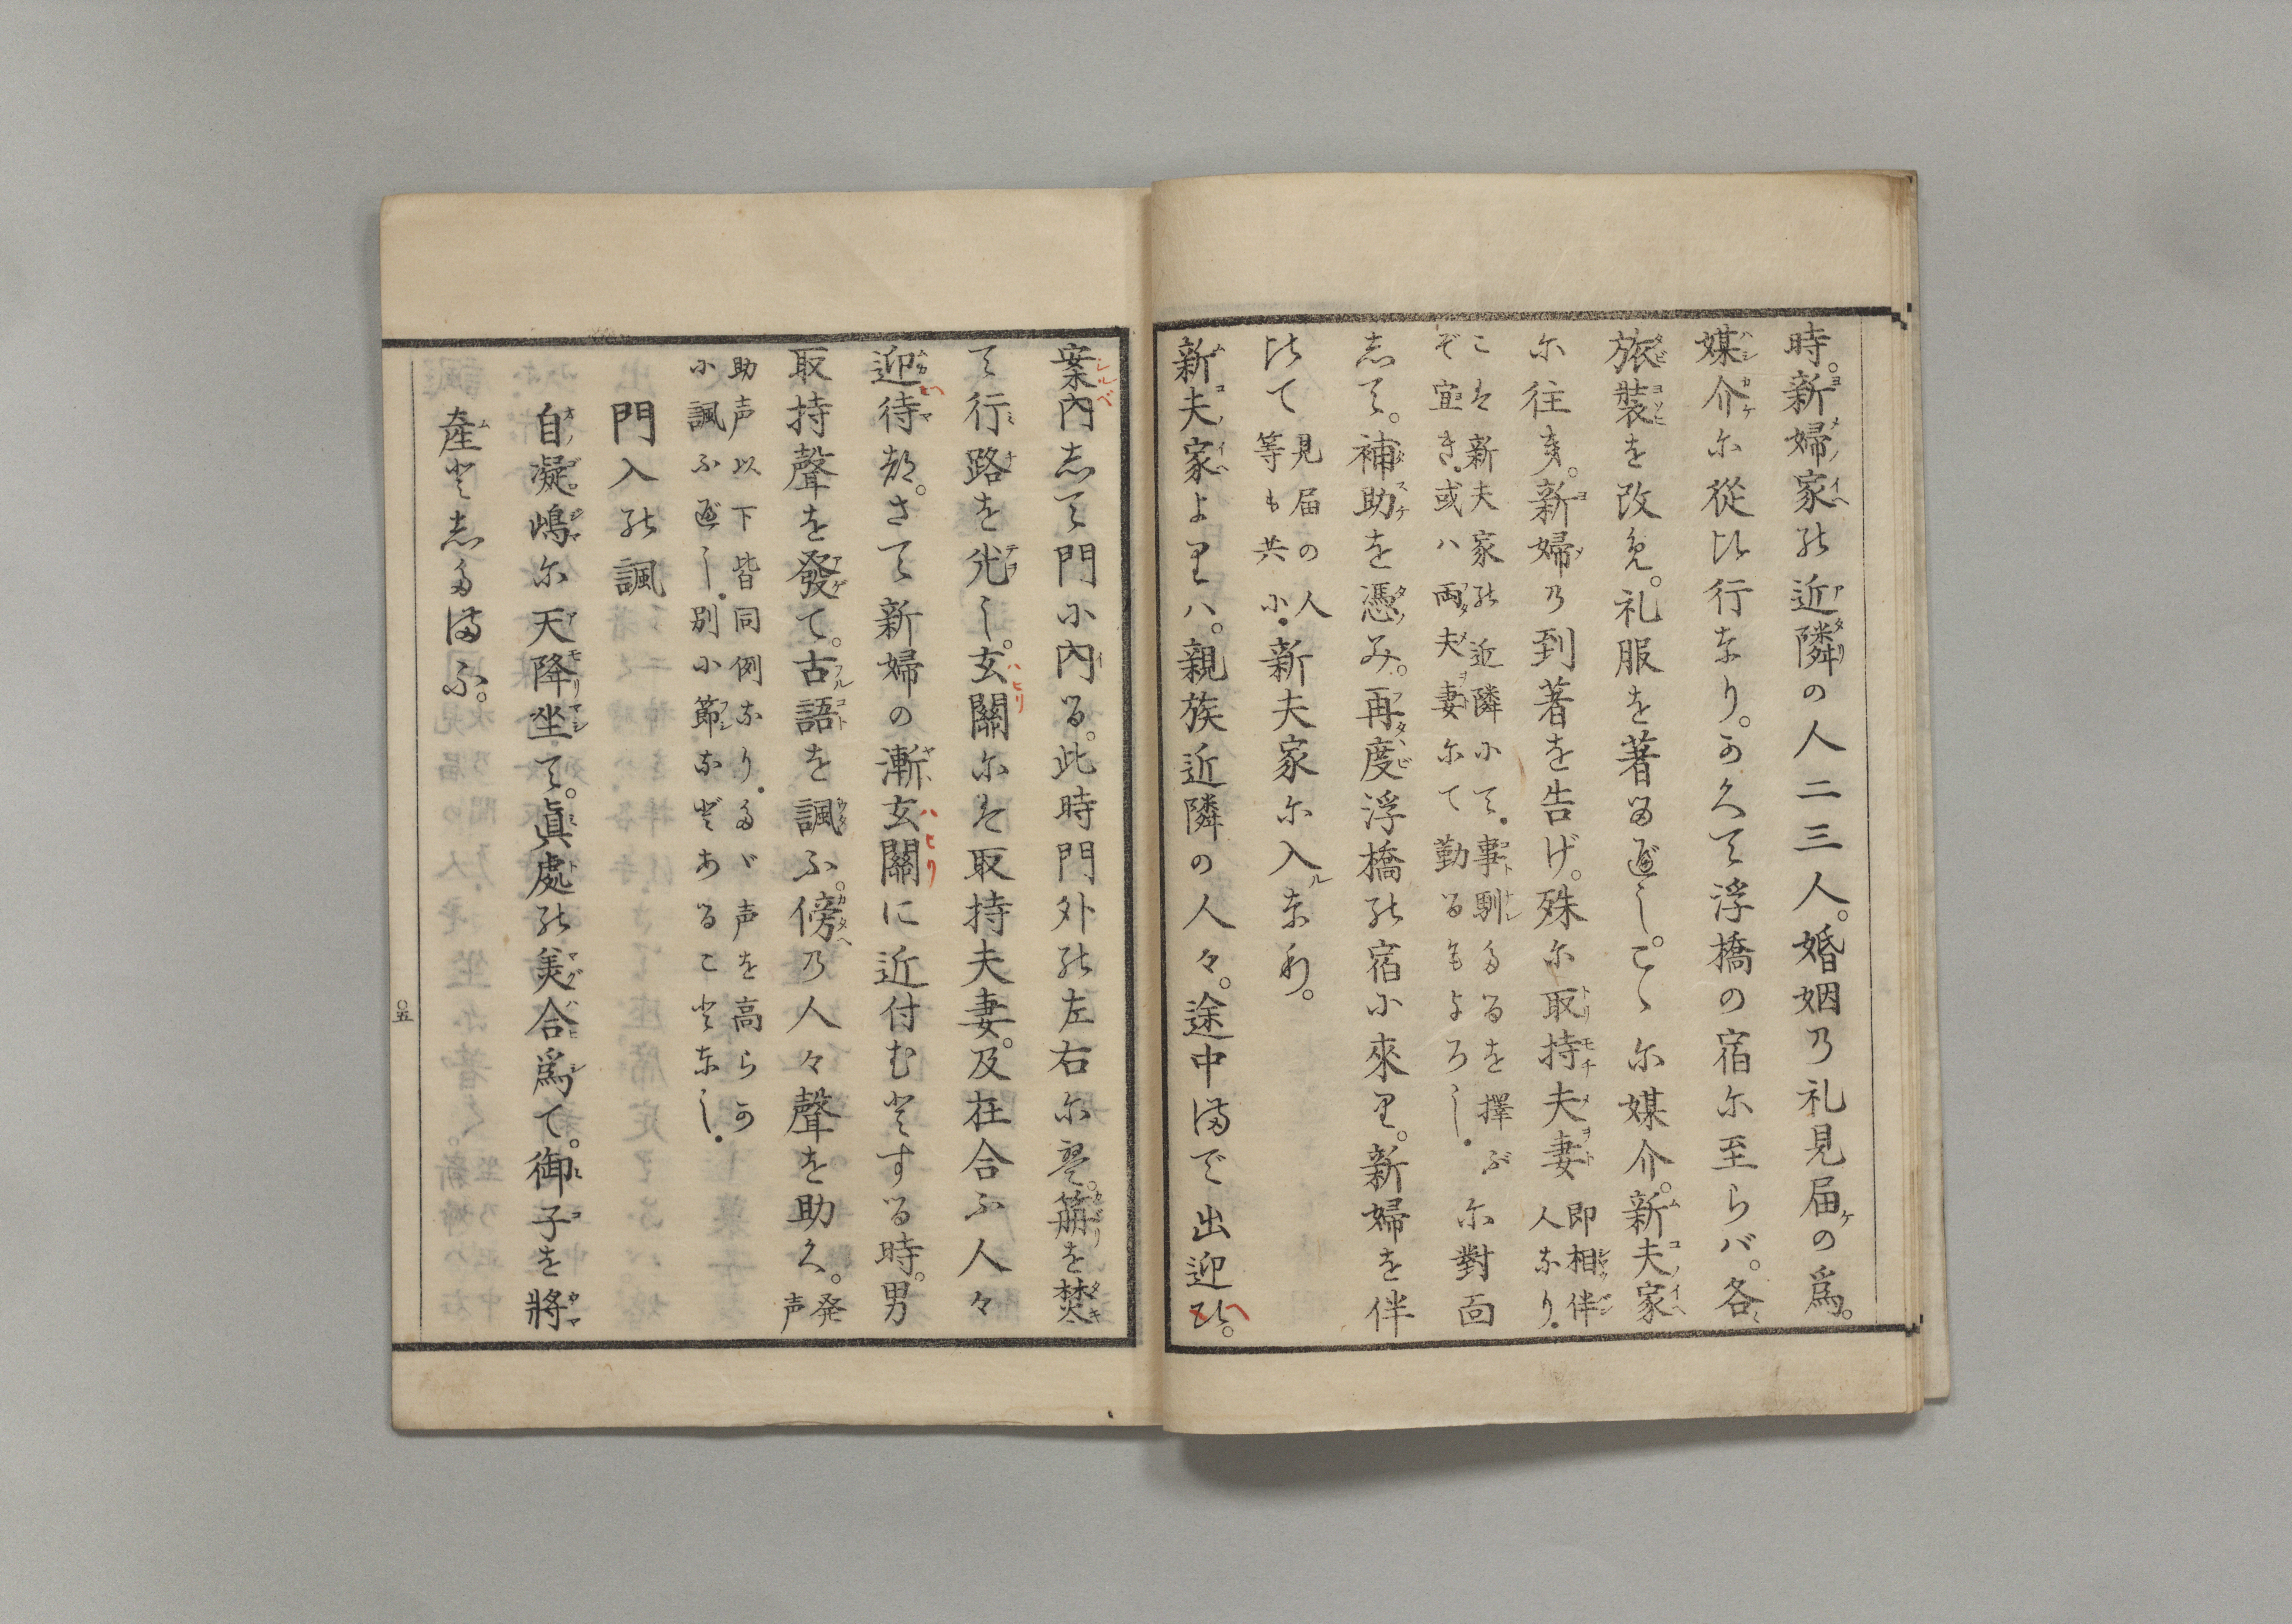 時。新婦家の近隣の人二三人。婚姻乃礼見届の爲。
媒介尓從ひ行なり。かくて浮橋の宿尓至らバ。各
旅裝を改免。礼服を著る遍し。こゝ尓媒介。新夫家
尓往き。新婦乃到著を告げ。殊尓取持夫妻 即相伴
人なり。
こは新夫家の近隣小て。事馴たるを擇ぶ
ぞ宜き。或ハ両夫妻尓て勤るもよろし。 尓對面
志て。補助を憑み。再度浮橋の宿小來り。新婦を伴
ひて 見届の人
等も共 小。新夫家尓入来利。
新夫家よりハ。親族近隣の人々。途中まで出迎ひ。
案內志て門小內る。此時門外の左右尓 篝を焚
て行路を光し。玄關尓は取持夫妻。及在合ふ人々
迎待都。さて新婦の漸玄關に近付むとする時。男
取持聲を發て。古語を諷ふ。傍乃人々聲を助く。 発
声
助声以下皆同例なり。たゞ声を高らか
小諷ふ遍し。別小節などあることなし。
門入の諷
自凝嶋尓天降坐て。眞處の美合爲て。御子を將
產と志たまふ。
○五